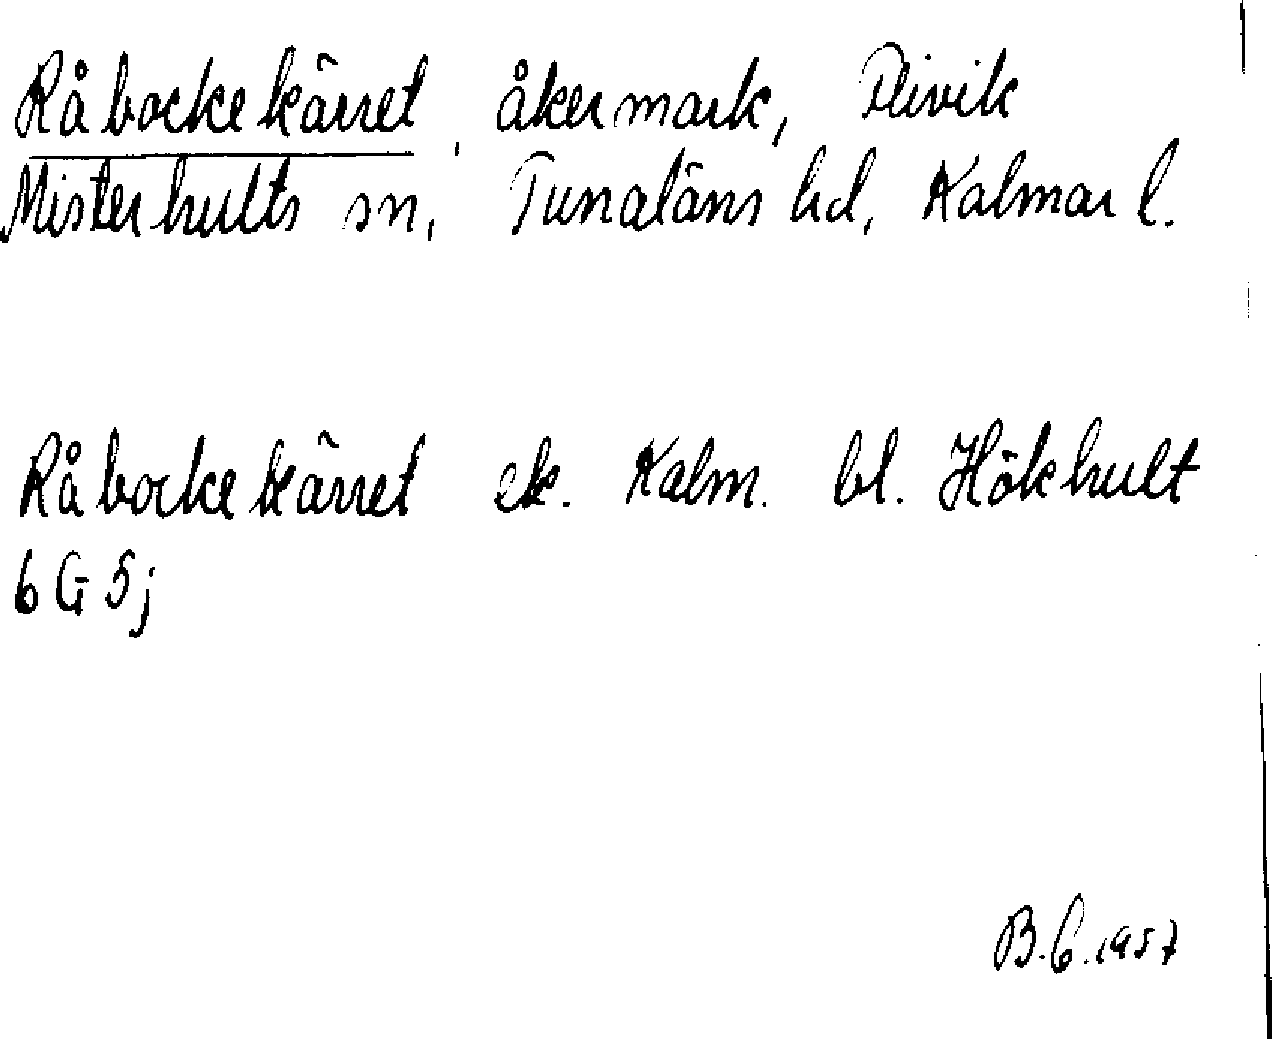 Råbockekärret, åkermark, Plivik
Misterhults sn, Tunaläns hd, Kalmar l.
Råbockekärret ek. Kalm. bl. Hökhult
6G5j
B.G. 1957